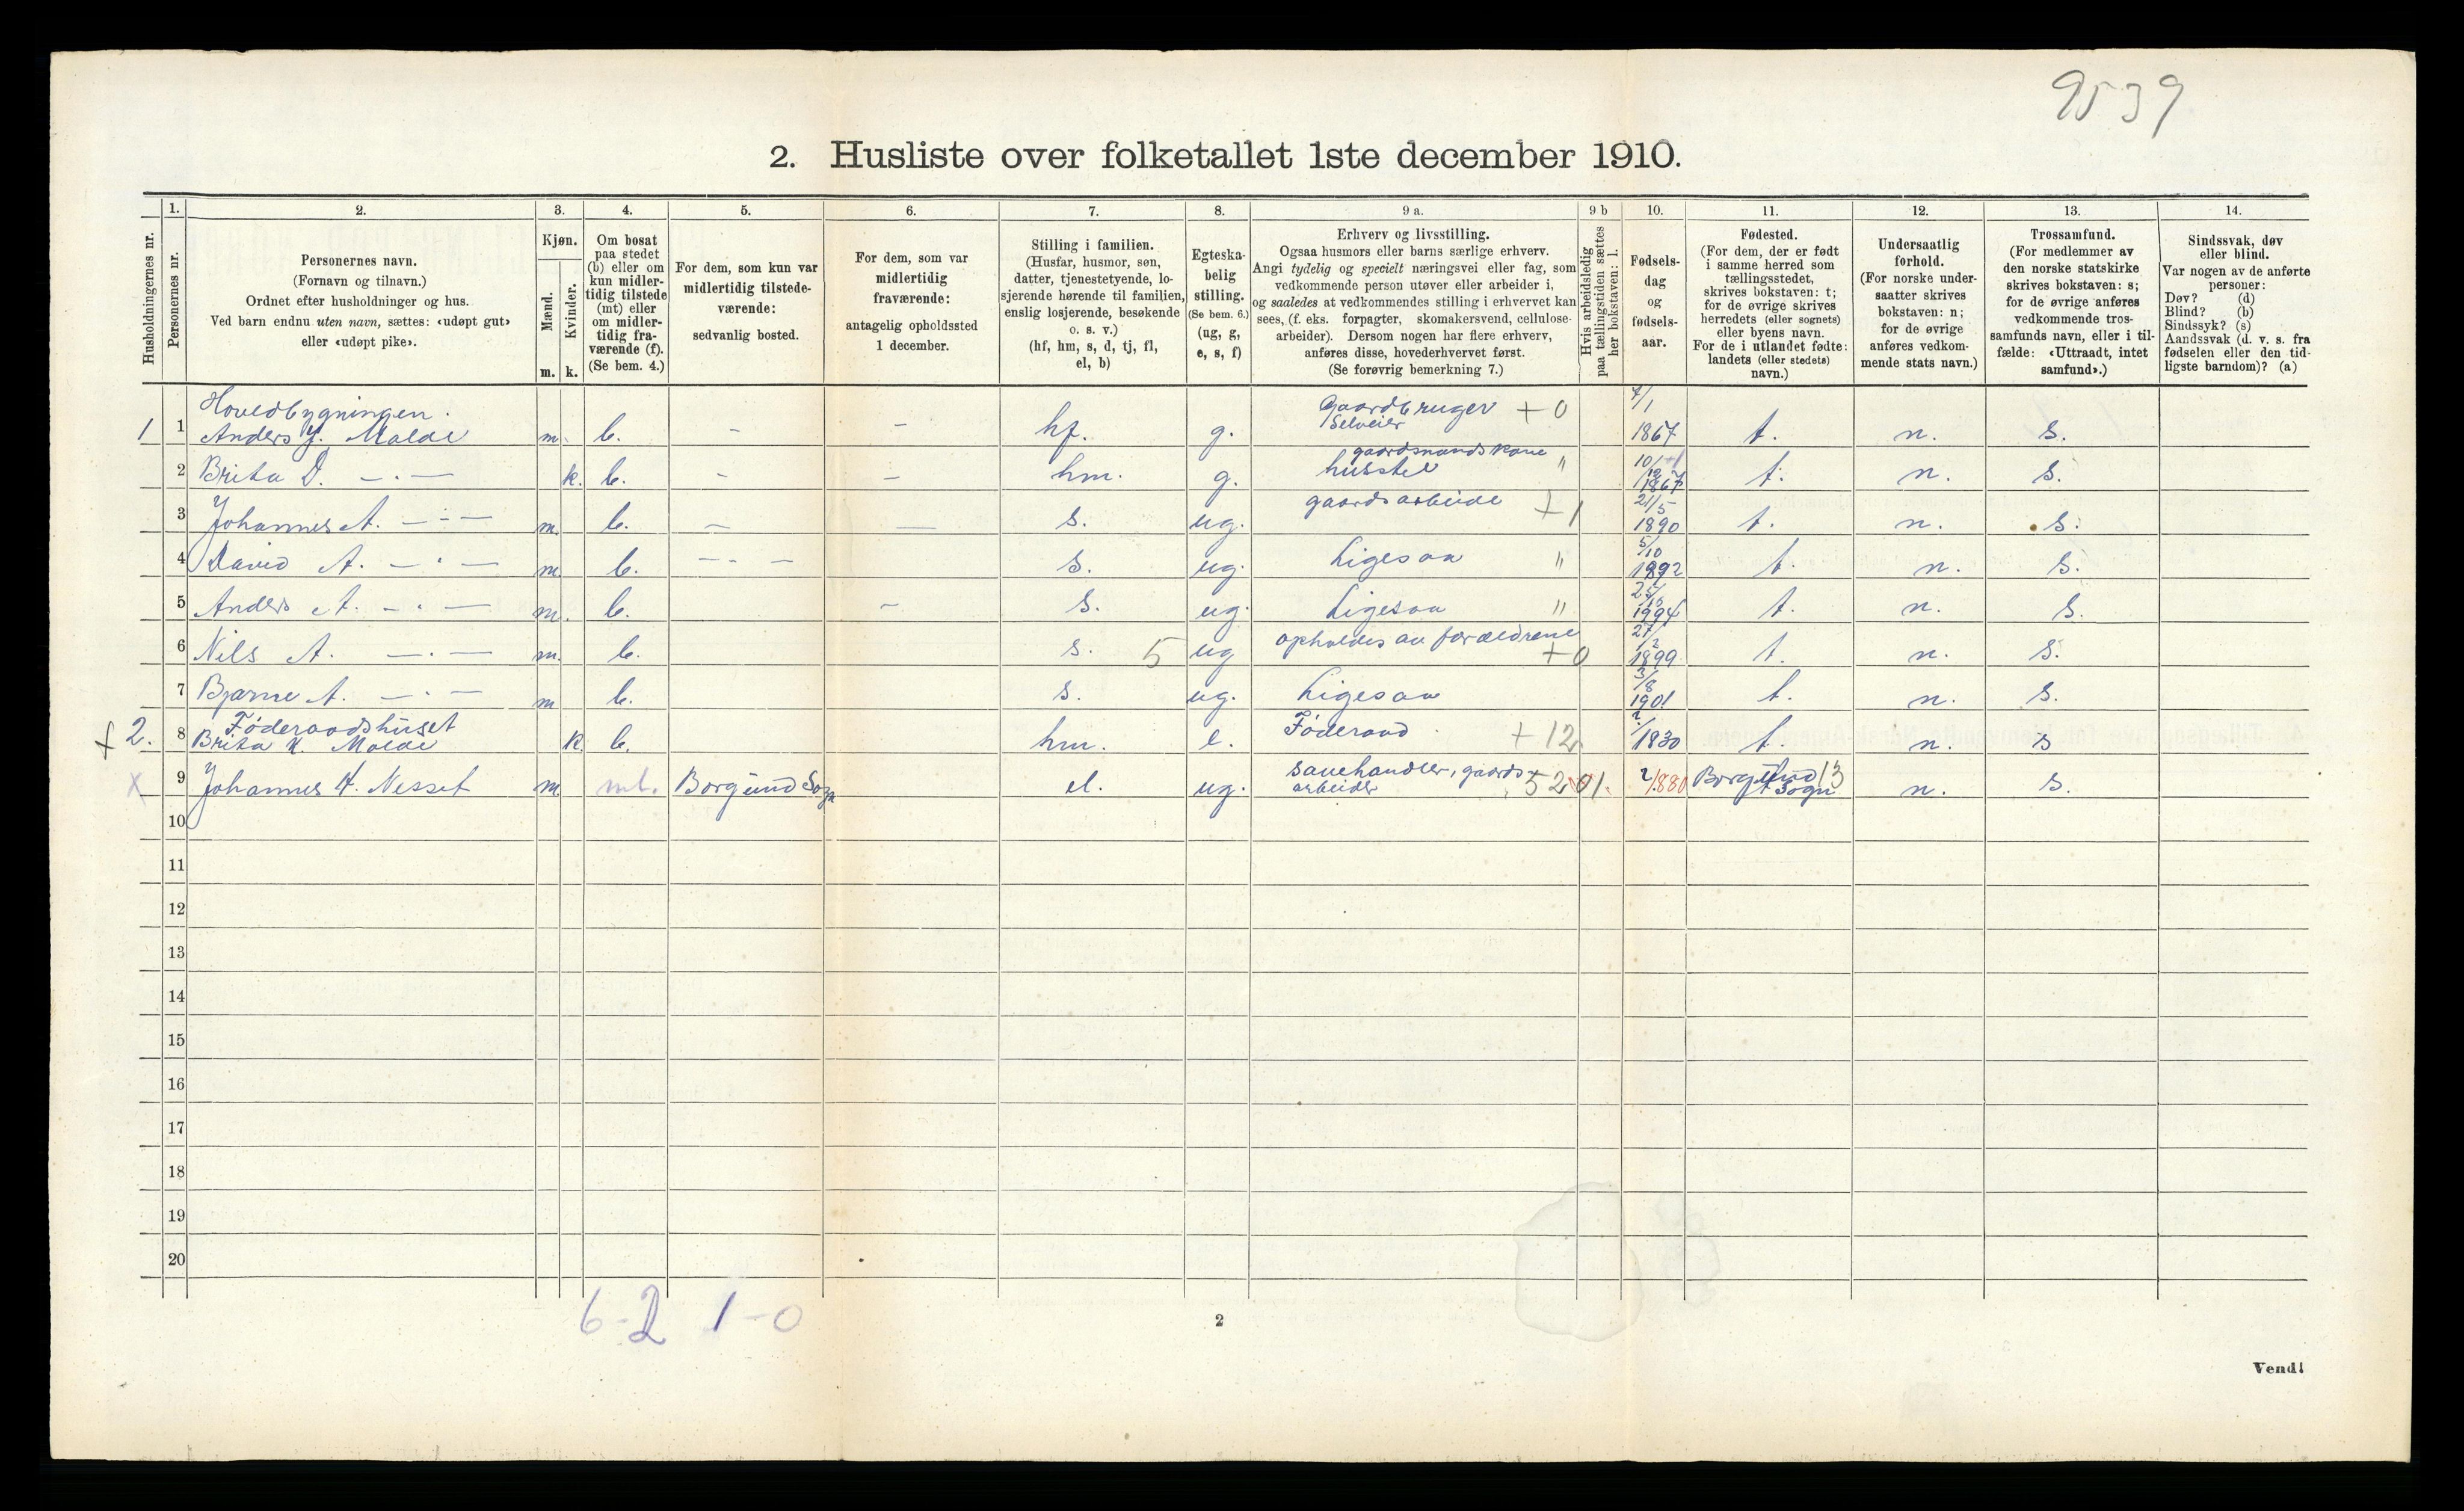 9539
2. Husliste over folketallet 1ste december 1910.
Husholdningernes nr.
1.
Personernes nr.
2.
Personernes navn.
(Fornavn og tilnavn.)
Ordnet efter husholdninger og hus.
Ved barn endnu uten navn, sættes: «udøpt gut»
eller «udøpt pike».
3.
Kjøn.
Mænd.
Kvinder.
m. k.
4.
Om bosat
paa stedet
(b) eller om
kun midler-
tidig tilstede
(mt) eller
om midler-
tidig fra-
værende (f).
(Se bem. 4.)
5.
For dem, som kun var
midlertidig tilstede-
værende:
sedvanlig bosted.
6.
For dem, som var
midlertidig
fraværende:
antagelig opholdssted
1 december.
7.
Stilling i familien.
(Husfar, husmor, søn,
datter, tjenestetyende, lo-
sjerende hørende til familien,
enslig losjerende, besøkende
o. s. v.)
(hf, hm, s, d, tj, fl,
el, b)
8.
Egteska-
belig
stilling.
(Se bem. 6.)
(ug, g,
e, s, f)
9 a.
Erhverv og livsstilling.
Ogsaa husmors eller barns særlige erhverv.
Angi tydelig og specielt næringsvei eller fag, som
vedkommende person utøver eller arbeider i,
og saaledes at vedkommendes stilling i erhvervet kan
sees, (f. eks. forpagter, skomakersvend, cellulose-
arbeider). Dersom nogen har flere erhverv,
anføres disse, hovederhvervet først.
(Se forøvrig bemerkning 7.)
9 b
Hvis arbeidsledig
paa tællingstiden sættes
her bokstaven: l.
10.
Fødsels-
dag
og
fødsels-
aar.
11.
Fødested.
(For dem, der er født
i samme herred som
tællingsstedet,
skrives bokstaven: t;
for de øvrige skrives
herredets (eller sognets)
eller byens navn.
For de i utlandet fødte:
landets (eller stedets)
navn.)
12.
Undersaatlig
forhold.
(For norske under-
saatter skrives
bokstaven: n;
for de øvrige
anføres vedkom-
mende stats navn.)
13.
Trossamfund.
(For medlemmer av
den norske statskirke
skrives bokstaven: s;
for de øvrige anføres
vedkommende tros-
samfunds navn, eller i til-
fælde: «Uttraadt, intet
samfund».)
14.
Sindssvak, døv
eller blind.
Var nogen av de anførte
personer:
Døv? (d)
Blind? (b)
Sindssyk? (s)
Aandssvak (d. v. s. fra
fødselen eller den tid-
ligste barndom)? (a)
Hovedbygningen.
1 1 Anders J. Molde m. b. - - hf. g. Gaardbruger Selveier + 0 4/1 1867 t. n. s.
2 Brita D. — · — k. b. - - hm. g. gaardmands kone husstel " 10/12 1867 t. n. s.
3 Johannes A. — · — m. b. — — s. ug. gaardsarbeide + 1 21/5 1890 t. n. s.
4 David A. — · — m. b. - - - s. ug. Ligesaa " 5/10 1892 t. n. s.
5 Anders A. — · — m. b. - s. ug. Ligesaa " 1994 t. n. s.
6 Nils A. — · — m. b. s. 5 ug opholdes av forældrene + 0 27/2 1899 t. n. s.
7 Bjarne A. — · — m b. s. ug. Ligesaa 3/8 1901 t. n. s.
Føderaadshuset
+ 2. 8 Brita N. Molde k b. hm. e. Føderaad + 12 ?/1830 t. n. s
X 9 Johannes A. Nesset m mt. Borgund Sogn el. ug. sauehandler, gaards-arbeider 5201. ?/1880 Borgund Sogn 13 n. s.
10
11
12
13
14
15
16
17
18
19
20
6-2 1-0
2
Vend!